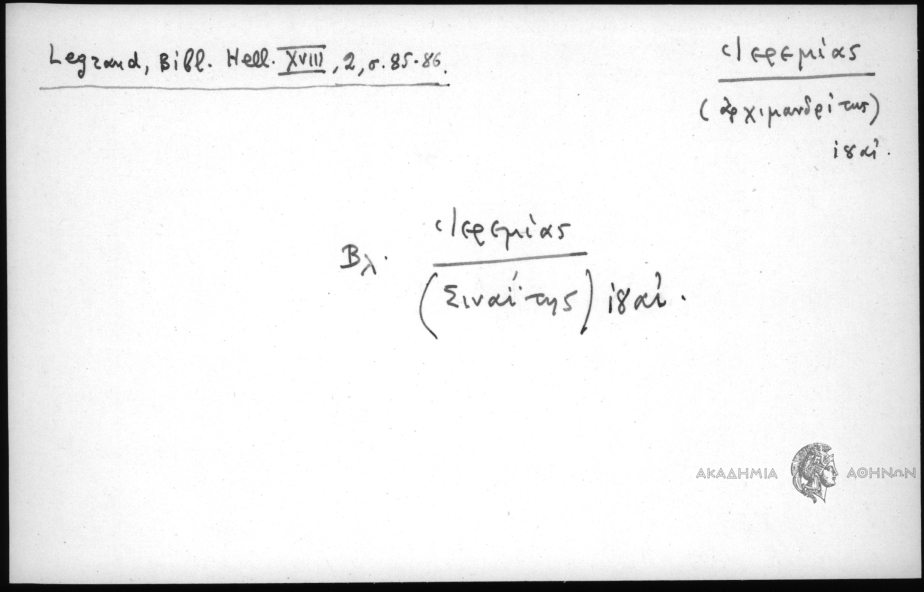 Legrand, Bibl. Hell. XVIII, 2, σ. 85-86.
Ἱερεμίας
(ἀρχιμανδρίτης)
ιη αἰ.
Βλ. Ἱερεμίας
(Σιναΐτης) ιη αἰ.
ΑΚΑΔΗΜΙΑ ΑΘΗΝΩΝ